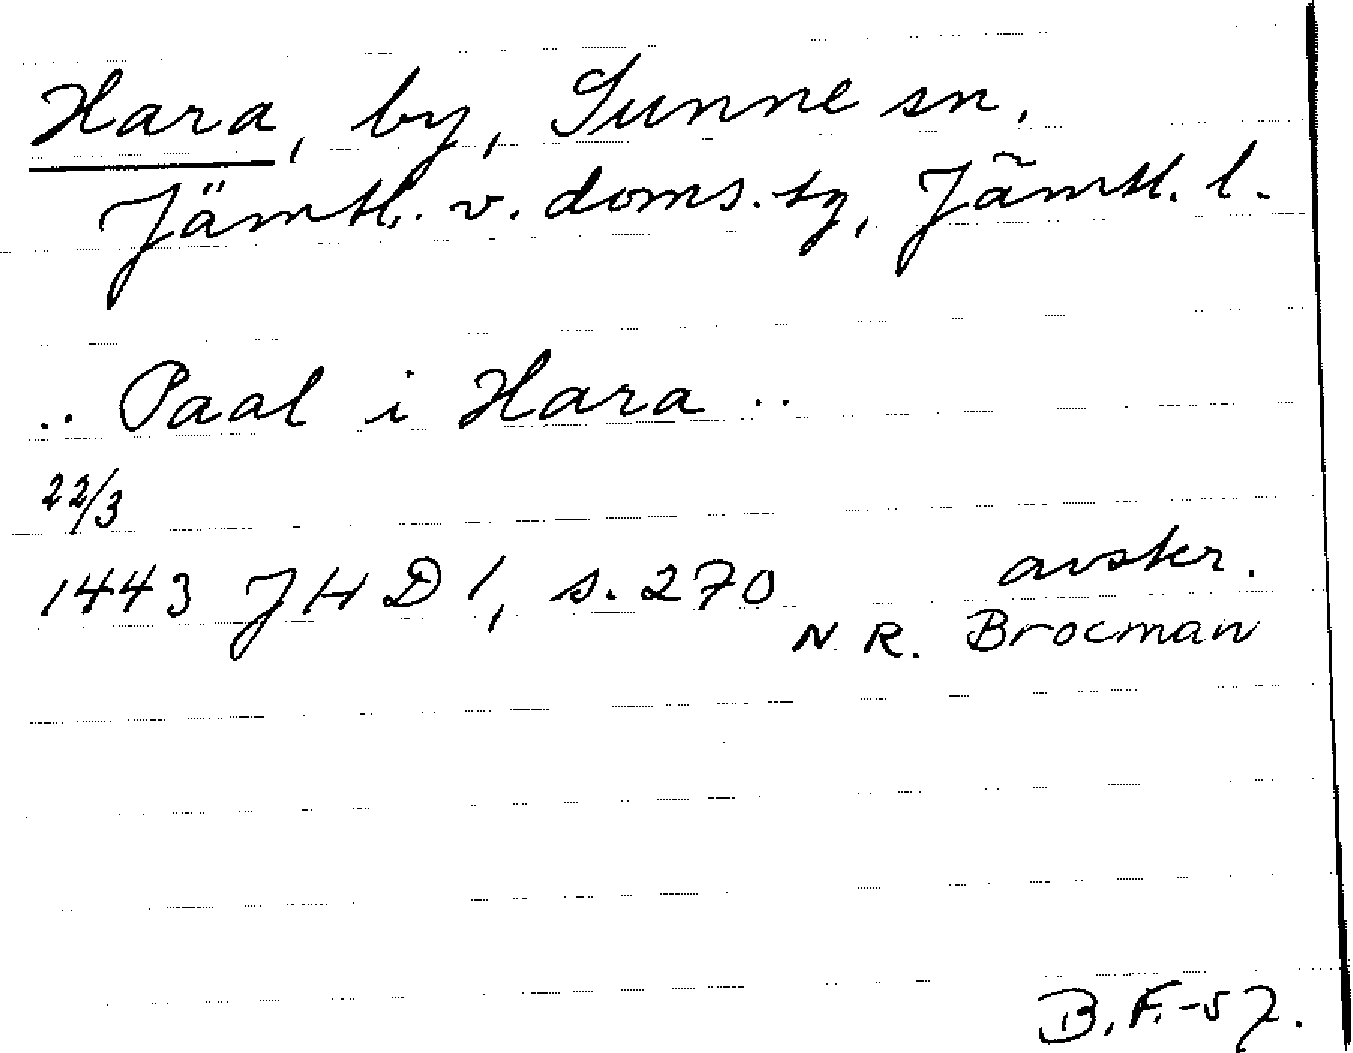 Hara, by, Sunne sn.
Jämtl. v. doms. tg, Jämtl. l.
.. Paal i Hara ..
22/3
1443 JHD 1, s. 270 avskr.
N. R. Brocman
B. F. -57.